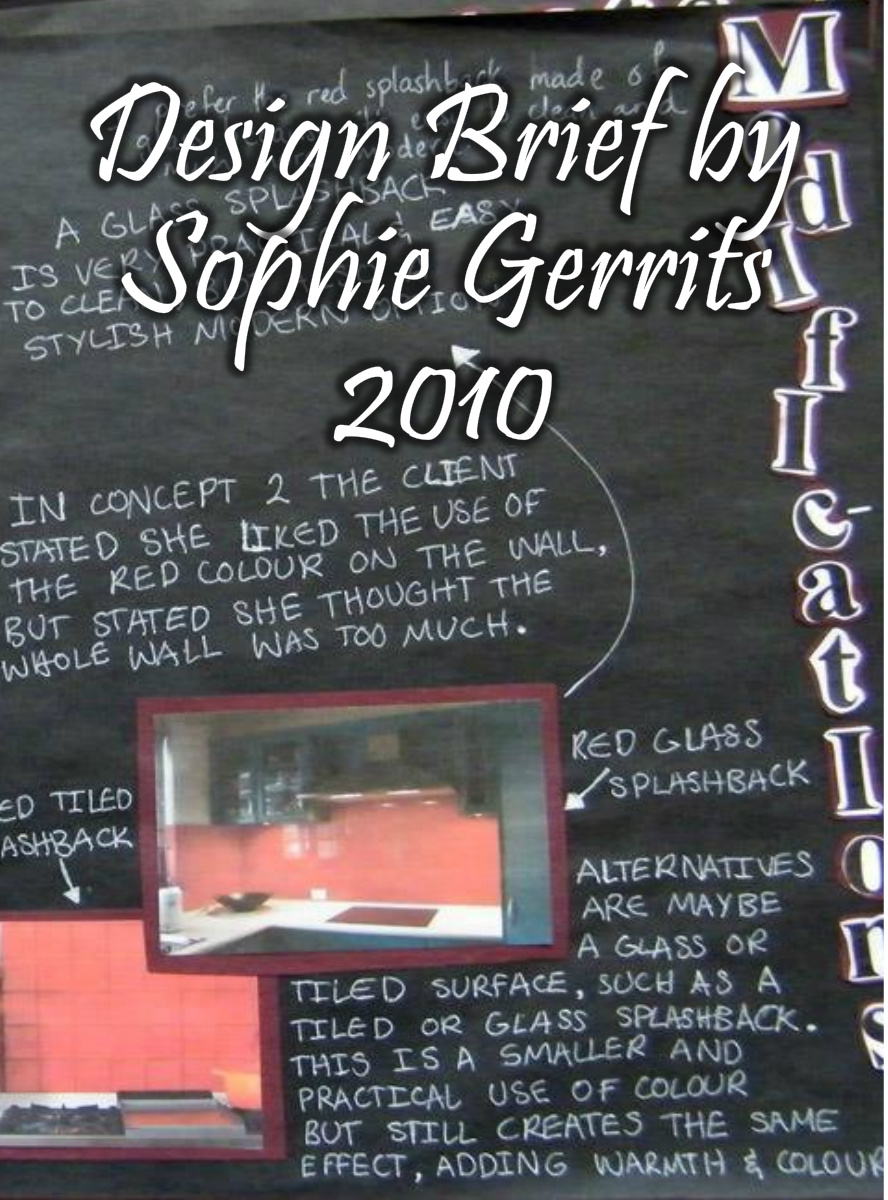 Design Brief by
Sophie Gerrits
2010
Modifications
prefer the red splashback made of
clean and
A GLASS SPLASHBACK
IS VERY PRACTICAL & EASY
TO CLEAN
STYLISH MODERN OPTION
IN CONCEPT 2 THE CLIENT
STATED SHE LIKED THE USE OF
THE RED COLOUR ON THE WALL,
BUT STATED SHE THOUGHT THE
WHOLE WALL WAS TOO MUCH.
RED GLASS
SPLASHBACK
ED TILED
ASHBACK
ALTERNATIVES
ARE MAYBE
A GLASS OR
TILED SURFACE, SUCH AS A
TILED OR GLASS SPLASHBACK.
THIS IS A SMALLER AND
PRACTICAL USE OF COLOUR
BUT STILL CREATES THE SAME
EFFECT, ADDING WARMTH & COLOUR